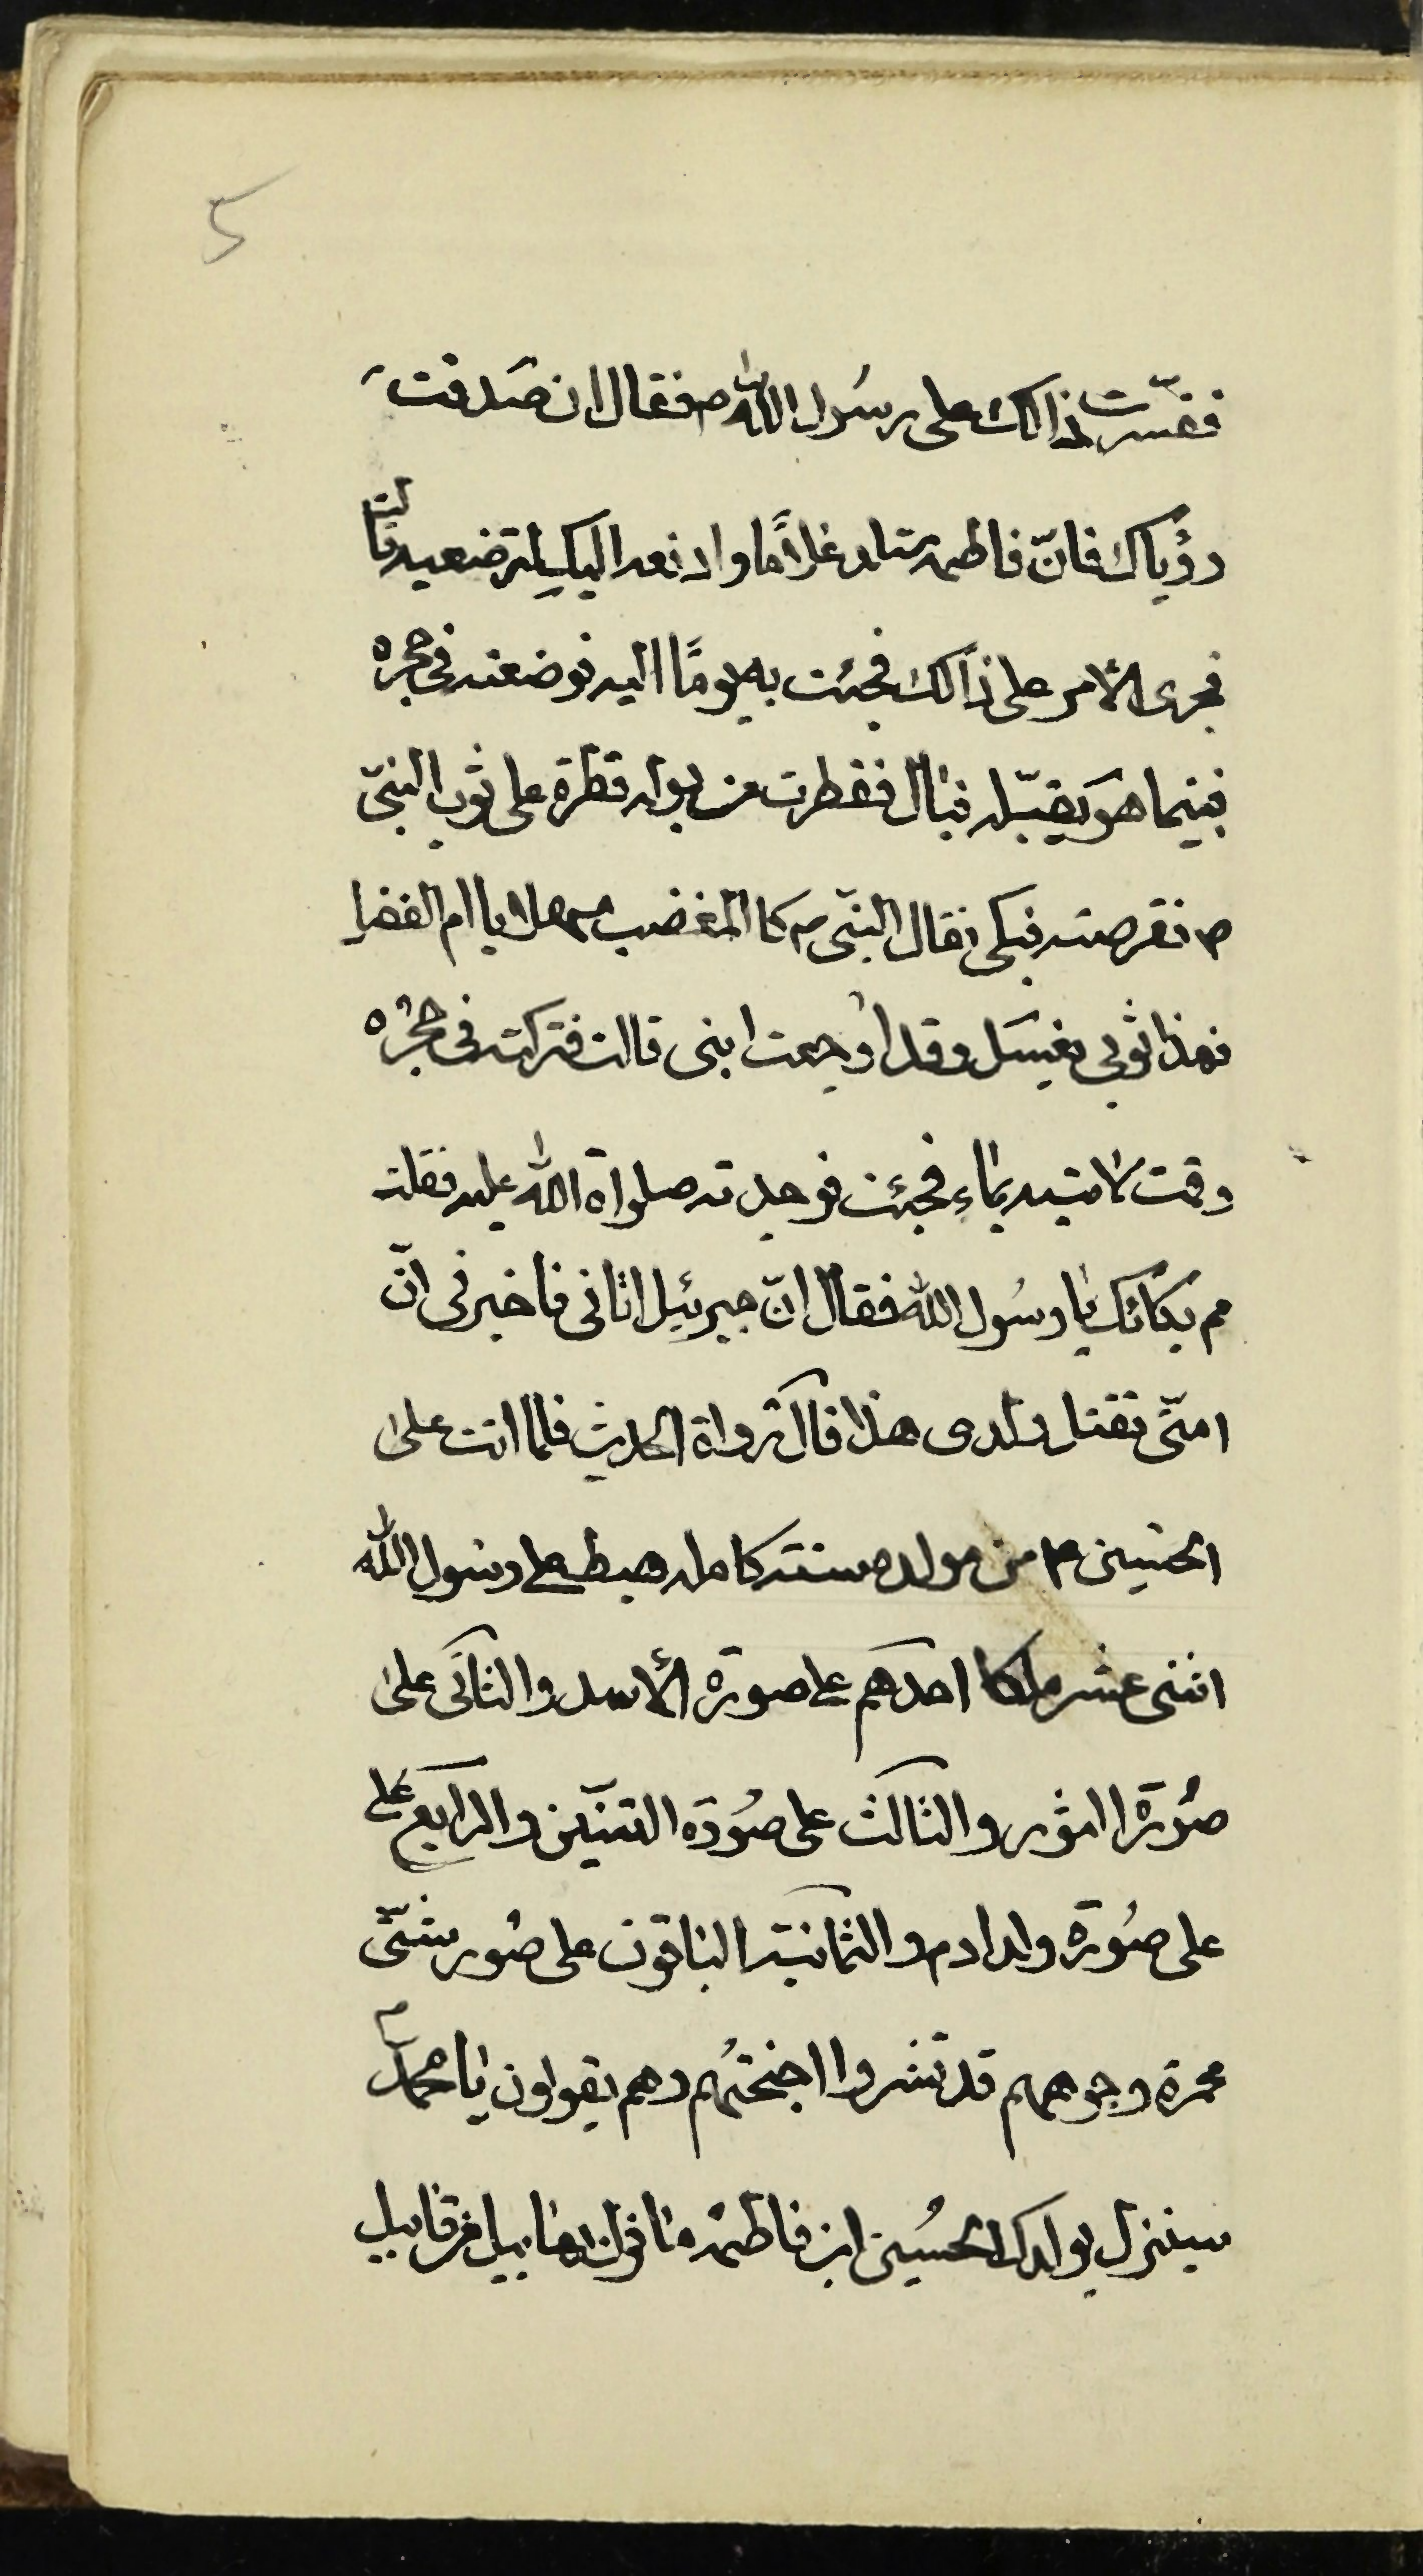 5
ففسّرت ذالك على رسُول الله ص فقال ان صَدقت
رؤياك فانّ فاطمه ستلد غلاًما وادفعه اليك لترضعيه قالت
فجرى الأمر على ذالك فجئت به يومًا اليه فوضعته فى حجره
فبينما هو يقبّله فبال فقطرت من بوله قطرة على ثوب النبىّ
ص فقرصته فبكى فقال النبىّ ص كالمغضب مهلا يا ام الفضل
فهذا ثوبى يغسل وقد اوجعت ابنى قالت فتركته فى حجره
وقمت لاتيه بماء فجئت فوجدته صلواة الله عليه فقلت
مم بكائك يا رسُول الله فقال انّ جبرئيل اتانى فاخبرنى انّ
امتّى تقتل ولدى هذا قال رواة الحديث فلما اتت على
الحسين ع من مولده سنته كامله هبط على رسول الله
اثنى عشر ملكا احدهم على صورة الأسد والثانى على
صُورة االثور والثالث على صُورة التنيّن والرابع على
على صُورة ولد ادم والثمانية الباقون على صُور شتّى
محمرة وجوههم قد نشروا اجنحتُهم وهم يقولون يا محمدّ ص
سينزل بولدك الحسُين ابن فاطمه ما نزل بهابيل من قابيل